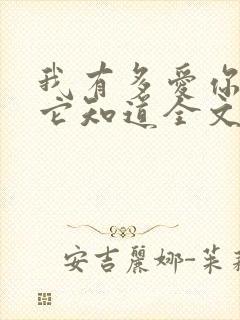 我有多愛你
它知道全文
安吉麗娜-茱莉